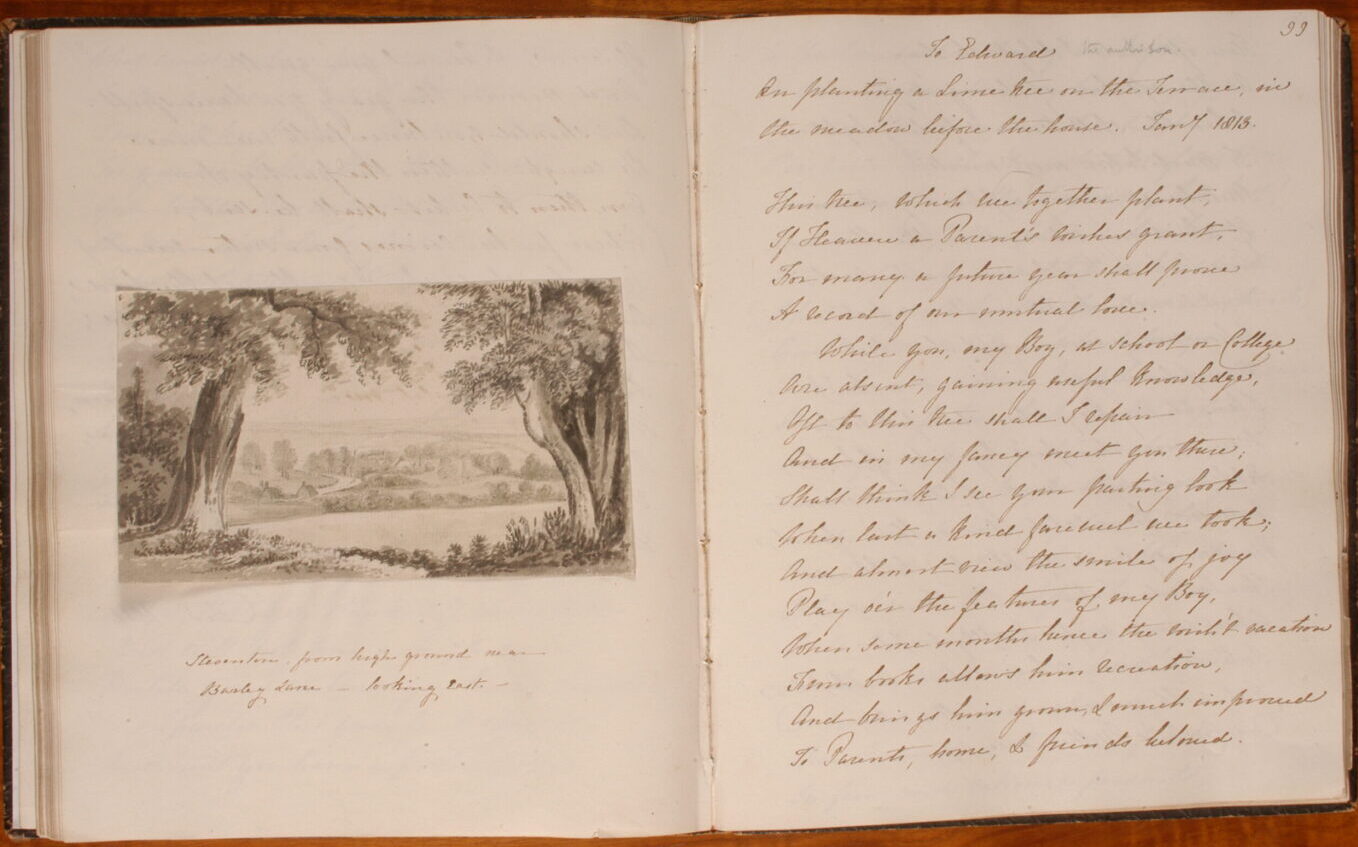 Steventon, from high ground near
Burley Lane – looking East. –
99
To Edward the author's son.
On planting a Lime tree on the Terrace, in
the meadow before the house. Jany 1813.
This tree, which we together plant,
If Heaven a Parent's wishes grant,
For many a future year shall prove
A record of our mutual love.
While you, my Boy, at school or College
Are absent, gaining useful knowledge,
Oft to this tree shall I repair
And in my fancy meet you there;
Shall think I see your parting look
When last a kind farewell we took;
And almost view the smile of joy
Play o'er the features of my Boy,
When some months hence the wish'd vacation
From books allows him recreation,
And brings him grown, & much improved
To Parents, home, & friends beloved.